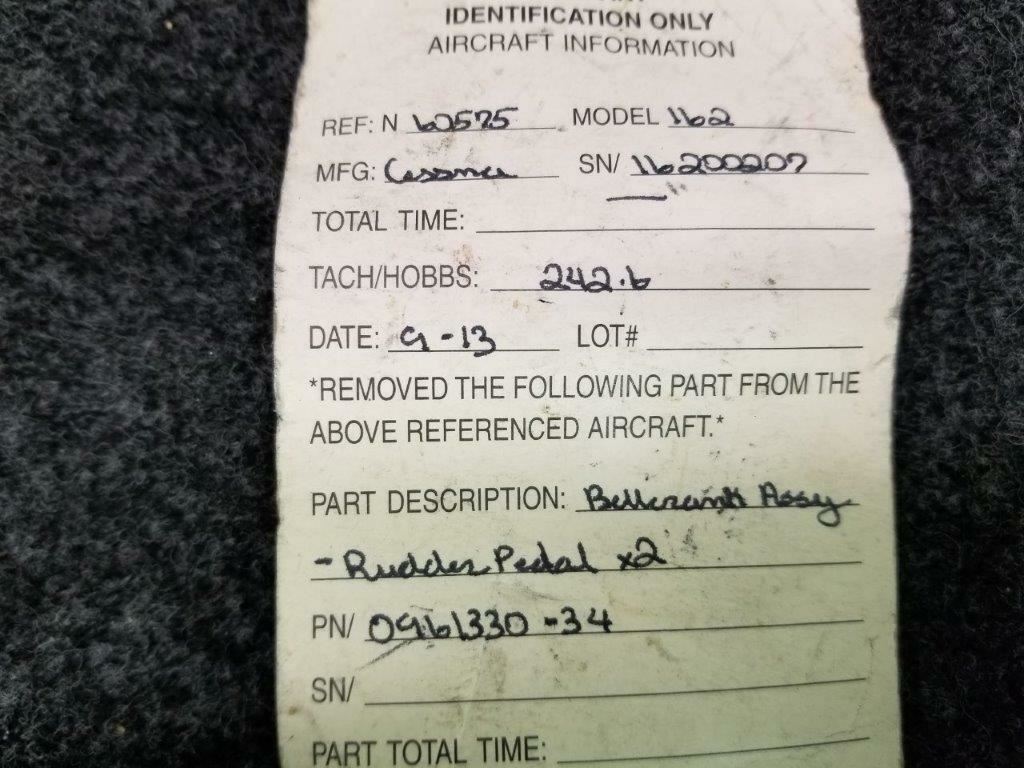 IDENTIFICATION ONLY
AIRCRAFT INFORMATION
REF: N 60575 MODEL 162
MFG: Cessna SN/ 16200207
TOTAL TIME:
TACH/HOBBS: 242.6
DATE: 9-13 LOT#
*REMOVED THE FOLLOWING PART FROM THE
ABOVE REFERENCED AIRCRAFT.*
PART DESCRIPTION: Bellcrank Assy
- Rudder Pedal x2
PN/ 0961330-34
SN/
PART TOTAL TIME: